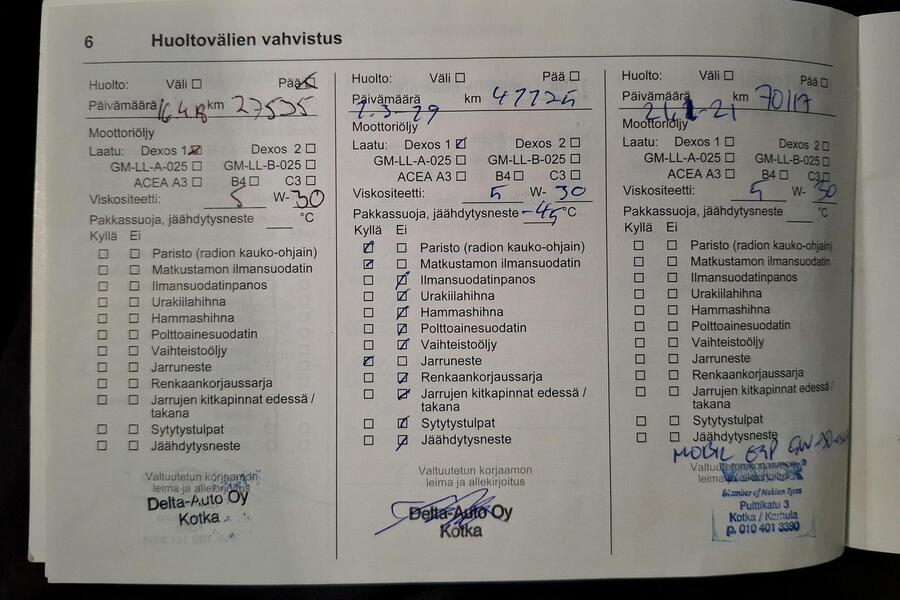 6 Huoltovälien vahvistus
Huolto: Väli Pää
Päivämäärä 16.4.18 km 27535
Moottoriöljy
Laatu: Dexos 1 Dexos 2
GM-LL-A-025 GM-LL-B-025
ACEA A3 B4 C3
Viskositeetti: 5 W- 30
Pakkassuoja, jäähdytysneste °C
Kyllä Ei
Paristo (radion kauko-ohjain)
Matkustamon ilmansuodatin
Ilmansuodatinpanos
Urakiilahihna
Hammashihna
Polttoainesuodatin
Vaihteistoöljy
Jarruneste
Renkaankorjaussarja
Jarrujen kitkapinnat edessä /
takana
Sytytystulpat
Jäähdytysneste
Valtuutetun korjaamon
leima ja allekirjoitus
Delta-Auto Oy
Kotka
Huolto: Väli Pää
Päivämäärä km
Moottoriöljy
Laatu: Dexos 1 Dexos 2
GM-LL-A-025 GM-LL-B-025
ACEA A3 B4 C3
Viskositeetti: 5 W- 30
Pakkassuoja, jäähdytysneste -45 °C
Kyllä Ei
Paristo (radion kauko-ohjain)
Matkustamon ilmansuodatin
Ilmansuodatinpanos
Urakiilahihna
Hammashihna
Polttoainesuodatin
Vaihteistoöljy
Jarruneste
Renkaankorjaussarja
Jarrujen kitkapinnat edessä /
takana
Sytytystulpat
Jäähdytysneste
Valtuutetun korjaamon
leima ja allekirjoitus
Delta-Auto Oy
Kotka
Huolto: Väli Pää
Päivämäärä km 70117
Moottoriöljy
Laatu: Dexos 1 Dexos 2
GM-LL-A-025 GM-LL-B-025
ACEA A3 B4 C3
Viskositeetti: 5 W- 30
Pakkassuoja, jäähdytysneste °C
Kyllä Ei
Paristo (radion kauko-ohjain)
Matkustamon ilmansuodatin
Ilmansuodatinpanos
Urakiilahihna
Hammashihna
Polttoainesuodatin
Vaihteistoöljy
Jarruneste
Renkaankorjaussarja
Jarrujen kitkapinnat edessä /
takana
Sytytystulpat
Jäähdytysneste
MOBIL ESP
Valtuutetun korjaamon
Member of Nokian Tyres
Pulttikatu 3
Kotka / Karhula
p. 010 401 3390